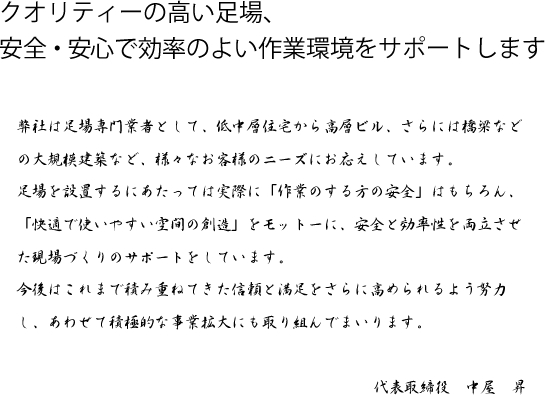 クオリティーの高い足場、
安全・安心で効率のよい作業環境をサポートします
弊社は足場専門業者として、低中層住宅から高層ビル、さらには橋梁など
の大規模建築など、様々なお客様のニーズにお応えしています。
足場を設置するにあたっては実際に「作業のする方の安全」はもちろん、
「快適で使いやすい空間の創造」をモットーに、安全と効率性を両立させ
た現場づくりのサポートをしています。
今後はこれまで積み重ねてきた信頼と満足をさらに高められるよう努力
し、あわせて積極的な事業拡大にも取り組んでまいります。
代表取締役　中屋　昇